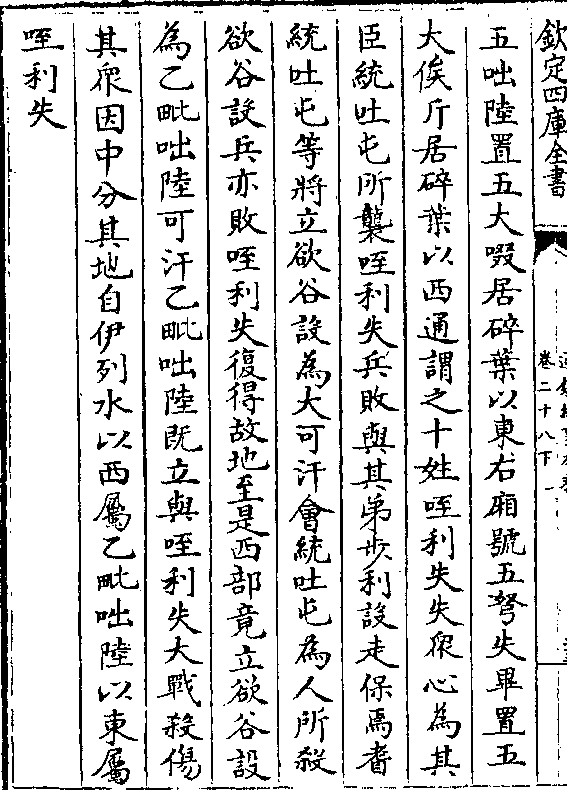 欽定四庫全書
卷二十八下
五咄陸置五大啜居碎葉以東右廂號五弩失畢置五
大俟斤居碎葉以西通謂之十姓咥利失失衆心為其
臣統吐屯所襲咥利失兵敗與其弟步利設走保焉耆
統吐屯等將立欲谷設為大可汗會統吐屯為人所殺
欲谷設兵亦敗咥利失復得故地至是西部竟立欲谷設
為乙毗咄陸可汗乙毗咄陸既立與咥利失大戰殺傷
其衆因中分其地自伊列水以西屬乙毗咄陸以東屬
咥利失